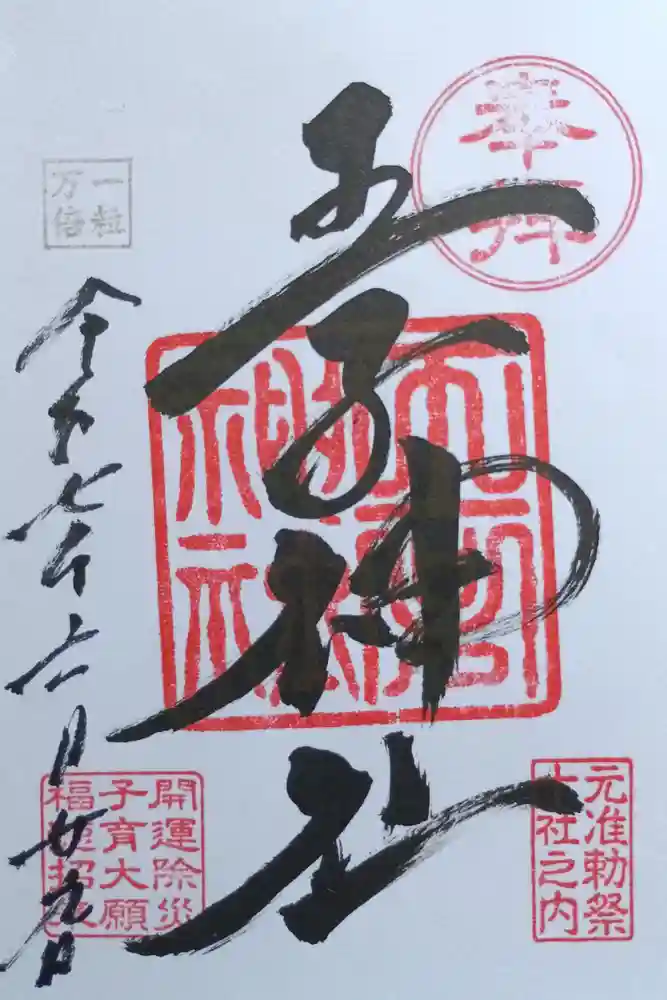 奉拝
王子神社
元准勅祭
十社之内
一粒
万倍
令和七年六月廿九日
開運除災
子育大願
福徳招来